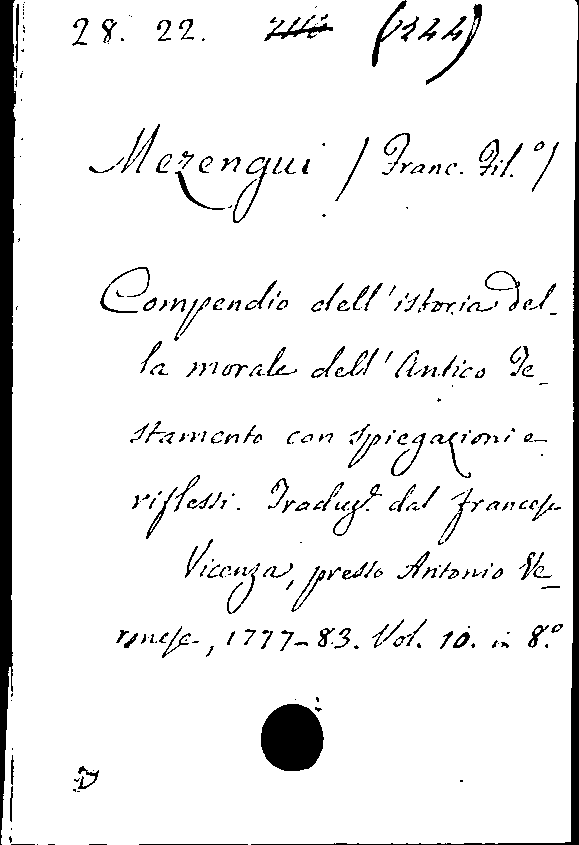 28. 22. (1244)
Mezengui / Franc. Fil.º /
Compendio dell' istoria del-
la morale dell' Antico Te-
stamento con spiegazioni e
riflessi. Traduz.e dal francese
Vicenza, presso Antonio Ve-
ronese, 1777-83. Vol. 10. in 8.º